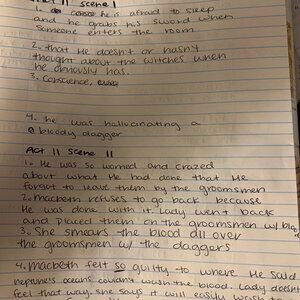 Act II scene I
1. he is afraid to sleep
and he grabs his sword when
someone enters the room
2. that He doesn't or hasn't
thought about the witches when
he obviously has.
3. Conscience,
4. he was hallucinating a
bloody dagger
Act II scene II
1. He was so worried and crazed
about what He had done that He
forgot to leave them by the groomsmen
2. Macbeth refuses to go back because
He was done with it. Lady went back
and placed them on the groomsmen w/
3. She smears the blood all over
the groomsmen w/ the daggers
4. Macbeth felt so guilty to where He said
neptunes oceans couldnt wash the blood. Lady doesn't
feel that way. She says it will easily wash